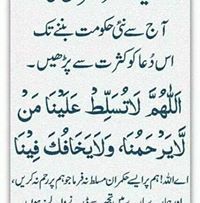 آج سے نئی حکومت بننے تک
اس دُعا کو کثرت سے پڑھیں۔
اَللّٰهُمَّ لَا تُسَلِّطْ عَلَيْنَا مَنْ
لَّا يَرْحَمُنَا وَلَا يَخَافُكَ فِيْنَا
اے اللہ! ہم پر ایسے حکمران مسلط نہ فرما جو ہم پر رحم نہ کریں،